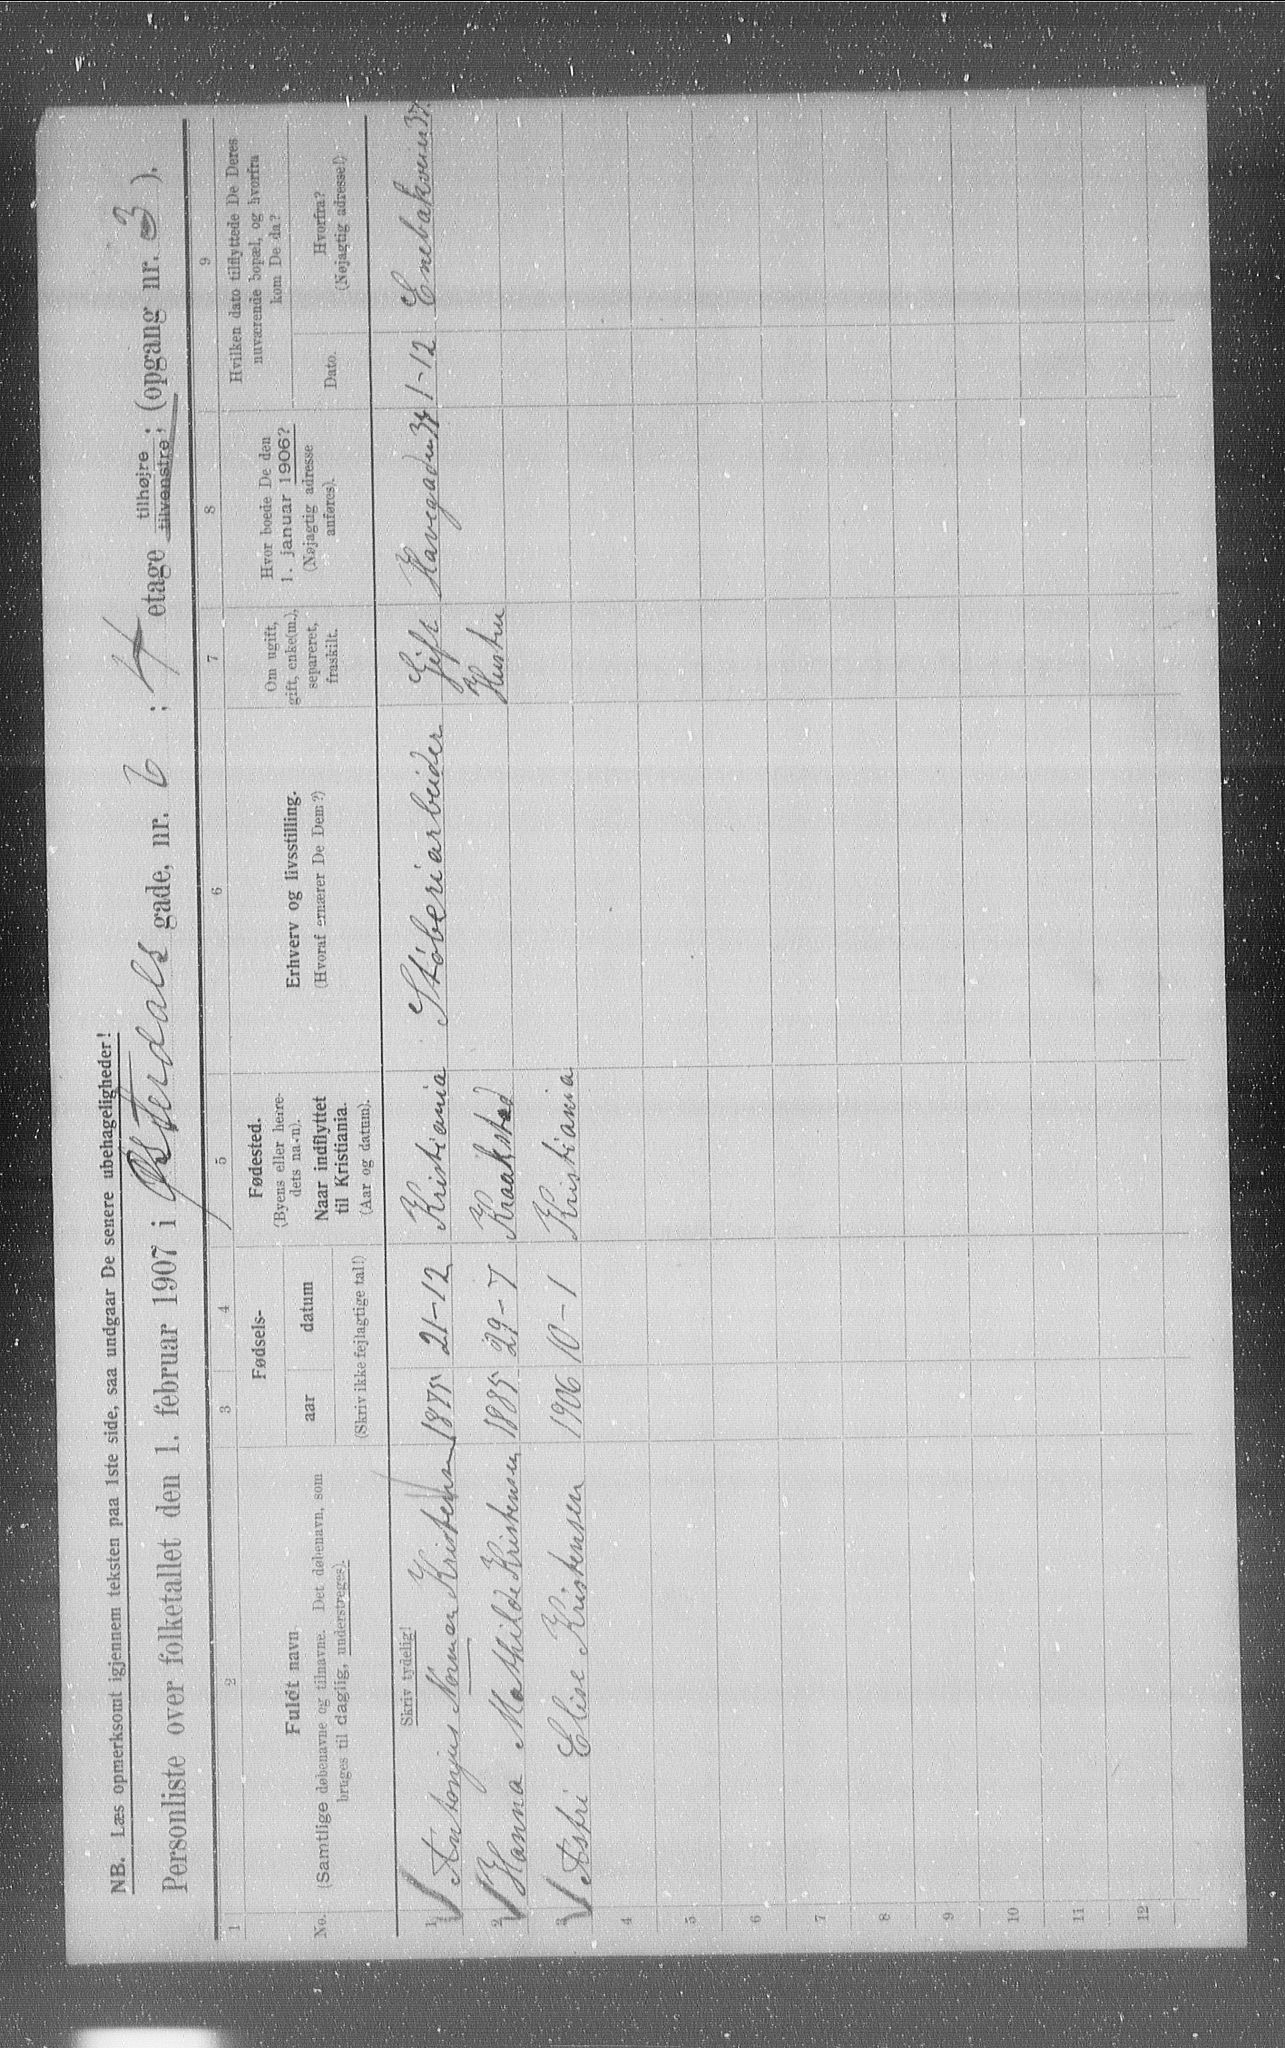 NB. Læs opmerksomt igjennem teksten paa 1ste side, saa undgaar De senere ubehageligheder!
Personliste over folketallet den 1. februar 1907 i Østerdals gade, nr. 6 ; 4 etage tilhøjre tilvenstre ; (opgang nr. 3 ).
1 2 3 4 5 6 7 8 9
No.
Fuldt navn
(Samtlige døbenavne og tilnavne. Det døbenavn, som
bruges til daglig, understreges).
Fødsels-
aar datum
(Skriv ikke fejlagtige tal!)
Fødested.
(Byens eller herre-
dets navn).
Naar indflyttet
til Kristiania.
(Aar og datum).
Erhverv og livsstilling.
(Hvoraf ernærer De Dem?)
Om ugift,
gift, enke(m.),
separeret,
fraskilt.
Hvor boede De den
1. januar 1906?
(Nøjagtig adresse
anføres).
Hvilken dato tilflyttede De Deres
nuværende bopæl, og hvorfra
kom De da?
Dato.
Hvorfra?
(Nøjagtig adresse!)
Skriv tydelig!
1 Antonjus Norman Kristensen 1875 21-12 Kristiania Støberiarbeider Gift Havegaden 1-12 Enebakvein 37.
2 Hanna Mathilde Kristensen 1885 29-7 Kraakstad Hustru
3 Astri Elise Kristensen 1906 10-1 Kristiania
4
5
6
7
8
9
10
11
12